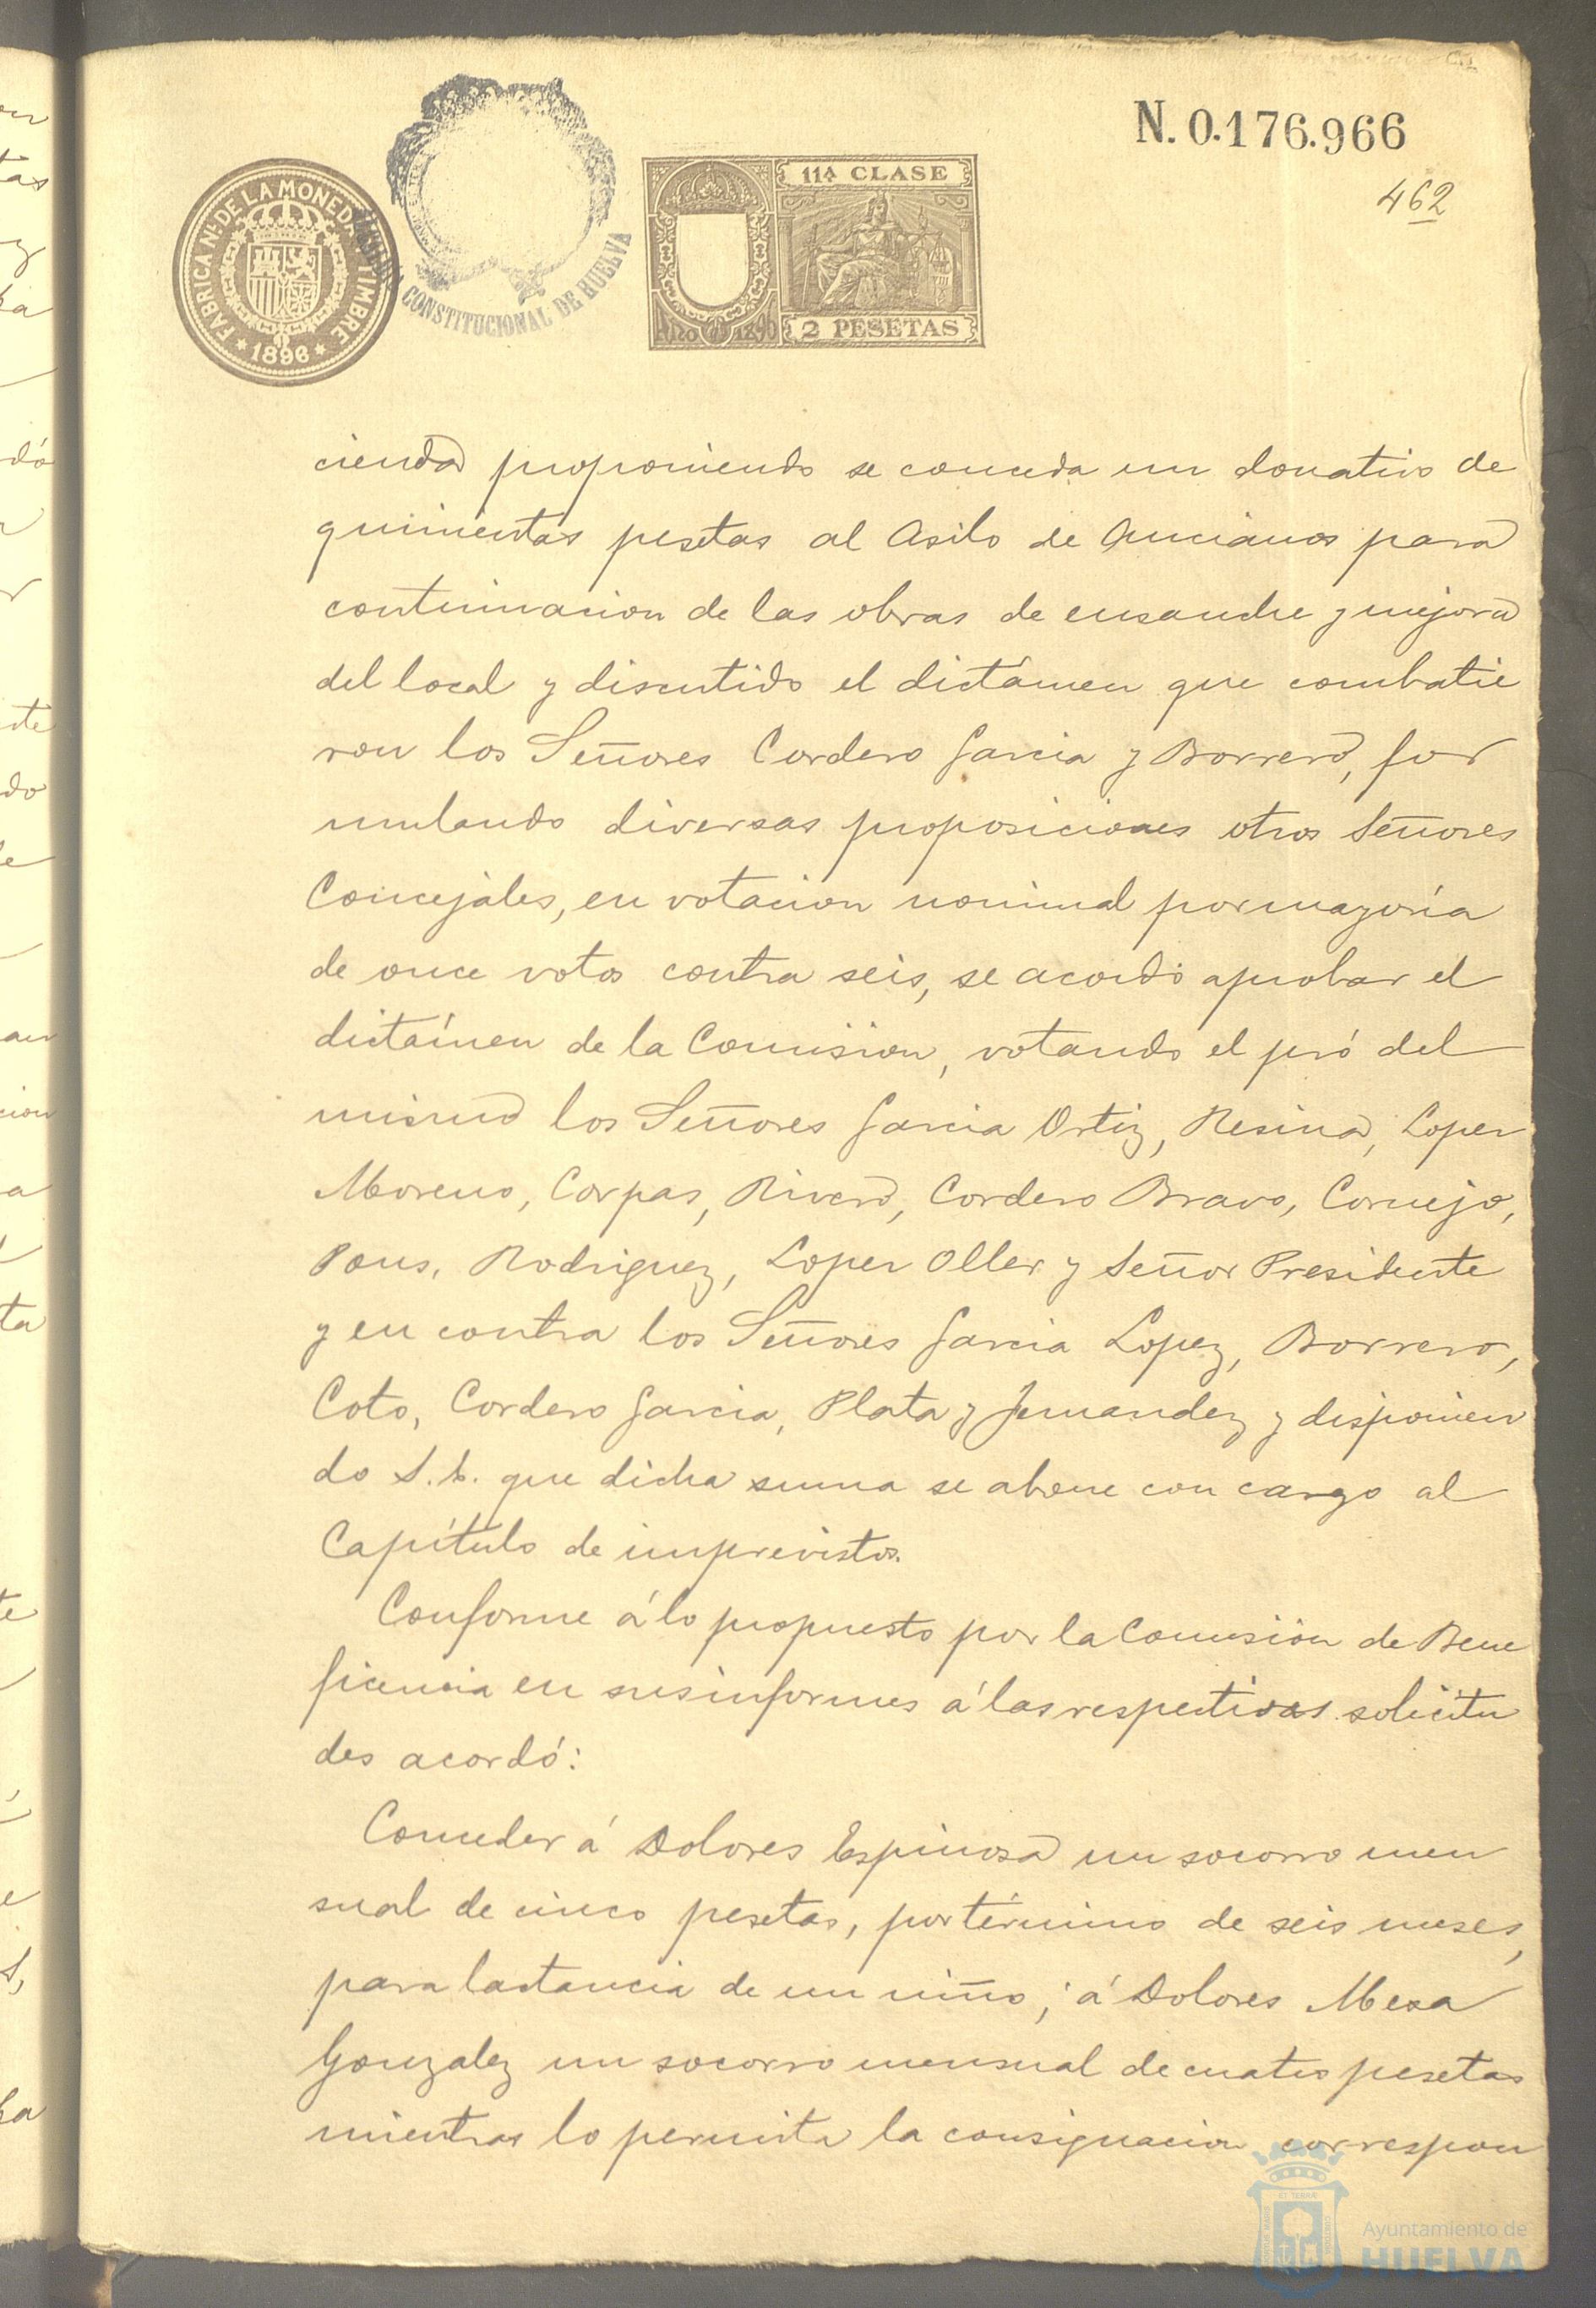 N. 0.176.966
462
FABRICA NAL DE LA MONEDA Y TIMBRE
* 1896 *
CONSTITUCIONAL DE HUELVA
11ª CLASE
AÑO 1896
2 PESETAS
cienda proponiendo se conceda un donativo de
quinientas pesetas al Asilo de Ancianos para
continuacion de las obras de ensanche y mejora
del local y discutido el dictámen que combatie
ron los Señores Cordero Garcia y Borrero, for
mulando diversas proposiciones otros Señores
Concejales, en votacion nominal por mayoría
de once votos contra seis, se acordó aprobar el
dictámen de la Comision, votando el pró del
mismo los Señores Garcia Ortiz, Resina, Lopez
Moreno, Corpas, Rivero, Cordero Bravo, Cornejo,
Pons, Rodriguez, Lopez Oller y Señor Presidente
y en contra los Señores Garcia Lopez, Borrero,
Coto, Cordero Garcia, Plata y Fernandez y disponien
do S. E. que dicha suma se abone con cargo al
Capítulo de imprevistos.
Conforme á lo propuesto por la Comisión de Bene
ficencia en sus informes á las respectivas solicitu
des acordó:
Conceder á Dolores Espinosa un socorro men
sual de cinco pesetas, por término de seis meses,
para lactancia de un niño; á Dolores Mesa
Gonzalez un socorro mensual de cuatro pesetas
mientras lo permita la consignacion correspon
Ayuntamiento de
HUELVA